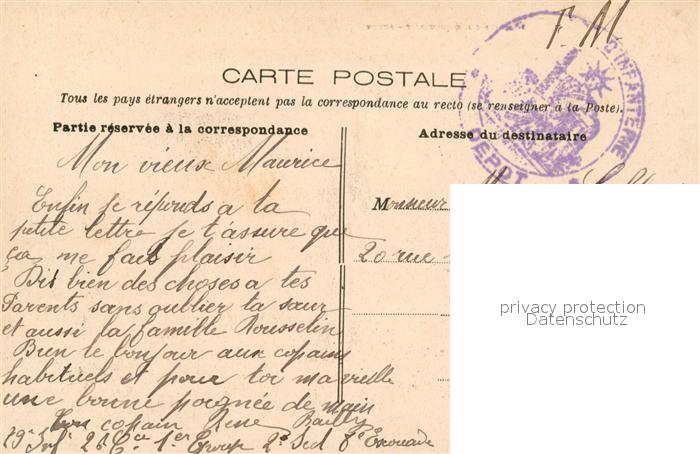 F. M
D'INFANTERIE
DEPOT
CARTE POSTALE
Tous les pays étrangers n'acceptent pas la correspondance au recto (se renseigner à la Poste).
Partie réservée à la correspondance
Adresse du destinataire
Mon vieux Maurice
Enfin je réponds a ta
petite lettre je t'assure que
ça me fait plaisir
Dis bien des choses a tes
Parents sans oublier ta sœur
et aussi la famille Rousselin
Bien le bonjour aux copains
habituels et pour toi ma vieille
une bonne poignée de main
Ton copain René Bailly
29e Inf 28e Cie 1er Group 2e Sed 8e Escouade
Monsieur
20 rue
privacy protection
Datenschutz